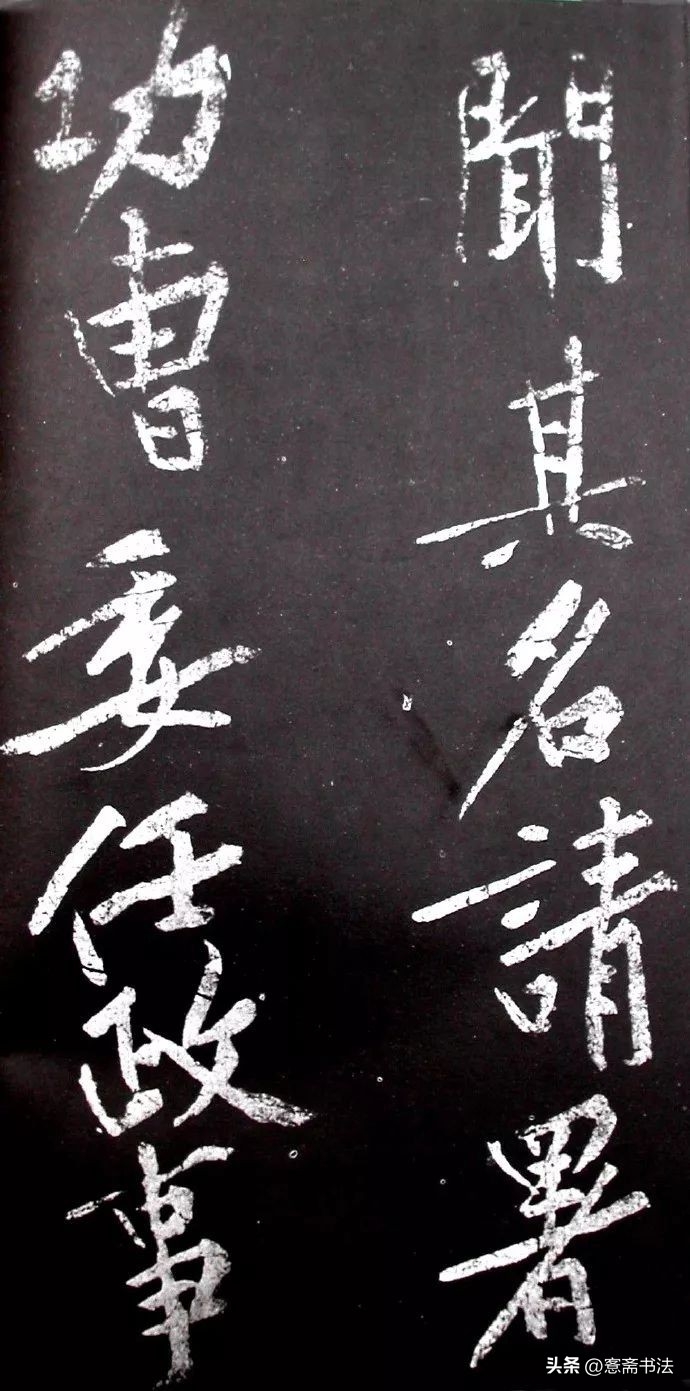 聞其名請署
功曹委任政事
头条@愙斋书法